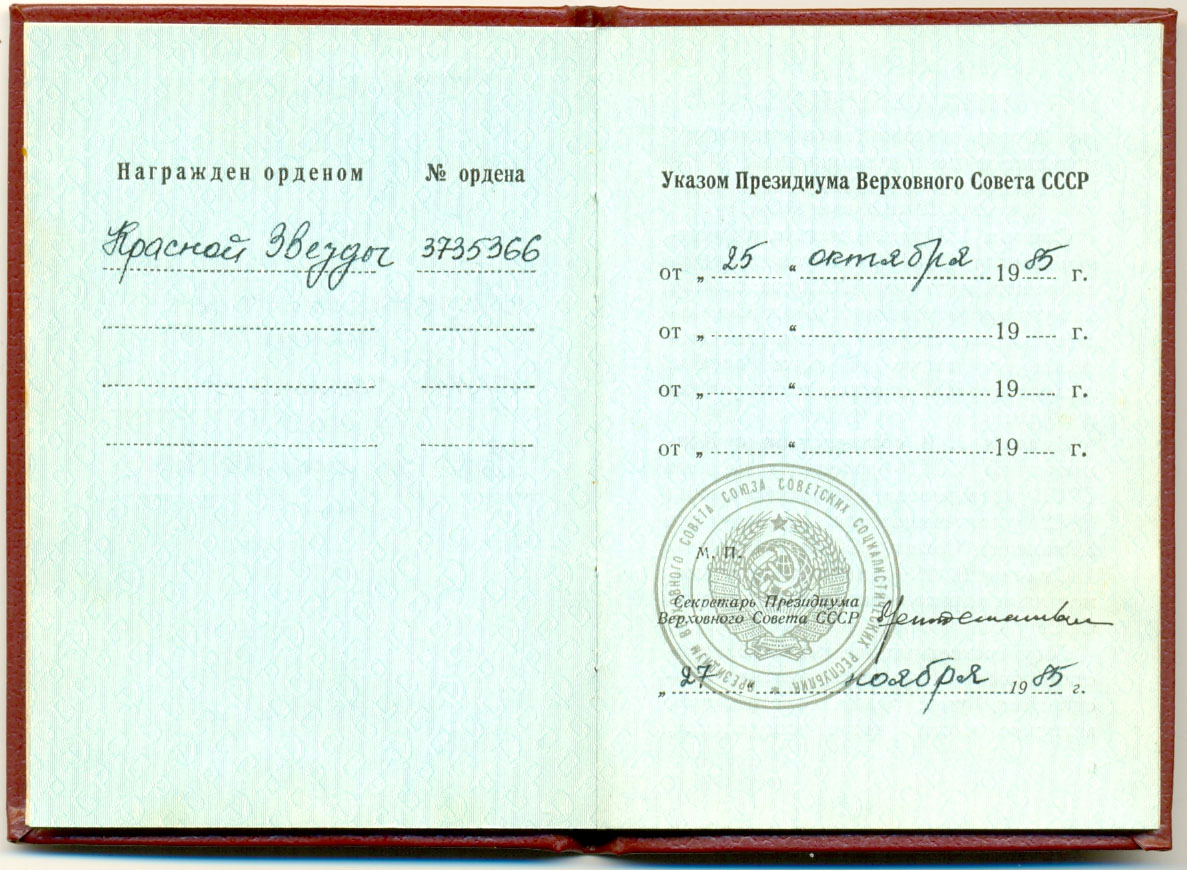 Награжден орденом № ордена
Красной Звезды 3735366
Указом Президиума Верховного Совета СССР
от „ 25 “ октября 1985 г.
от „ “ 19 г.
от „ “ 19 г.
от „ “ 19 г.
ПРЕЗИДИУМ ВЕРХОВНОГО СОВЕТА СОЮЗА СОВЕТСКИХ СОЦИАЛИСТИЧЕСКИХ РЕСПУБЛИК
М. П.
Секретарь Президиума
Верховного Совета СССР
„ 27 “ ноября 1985 г.